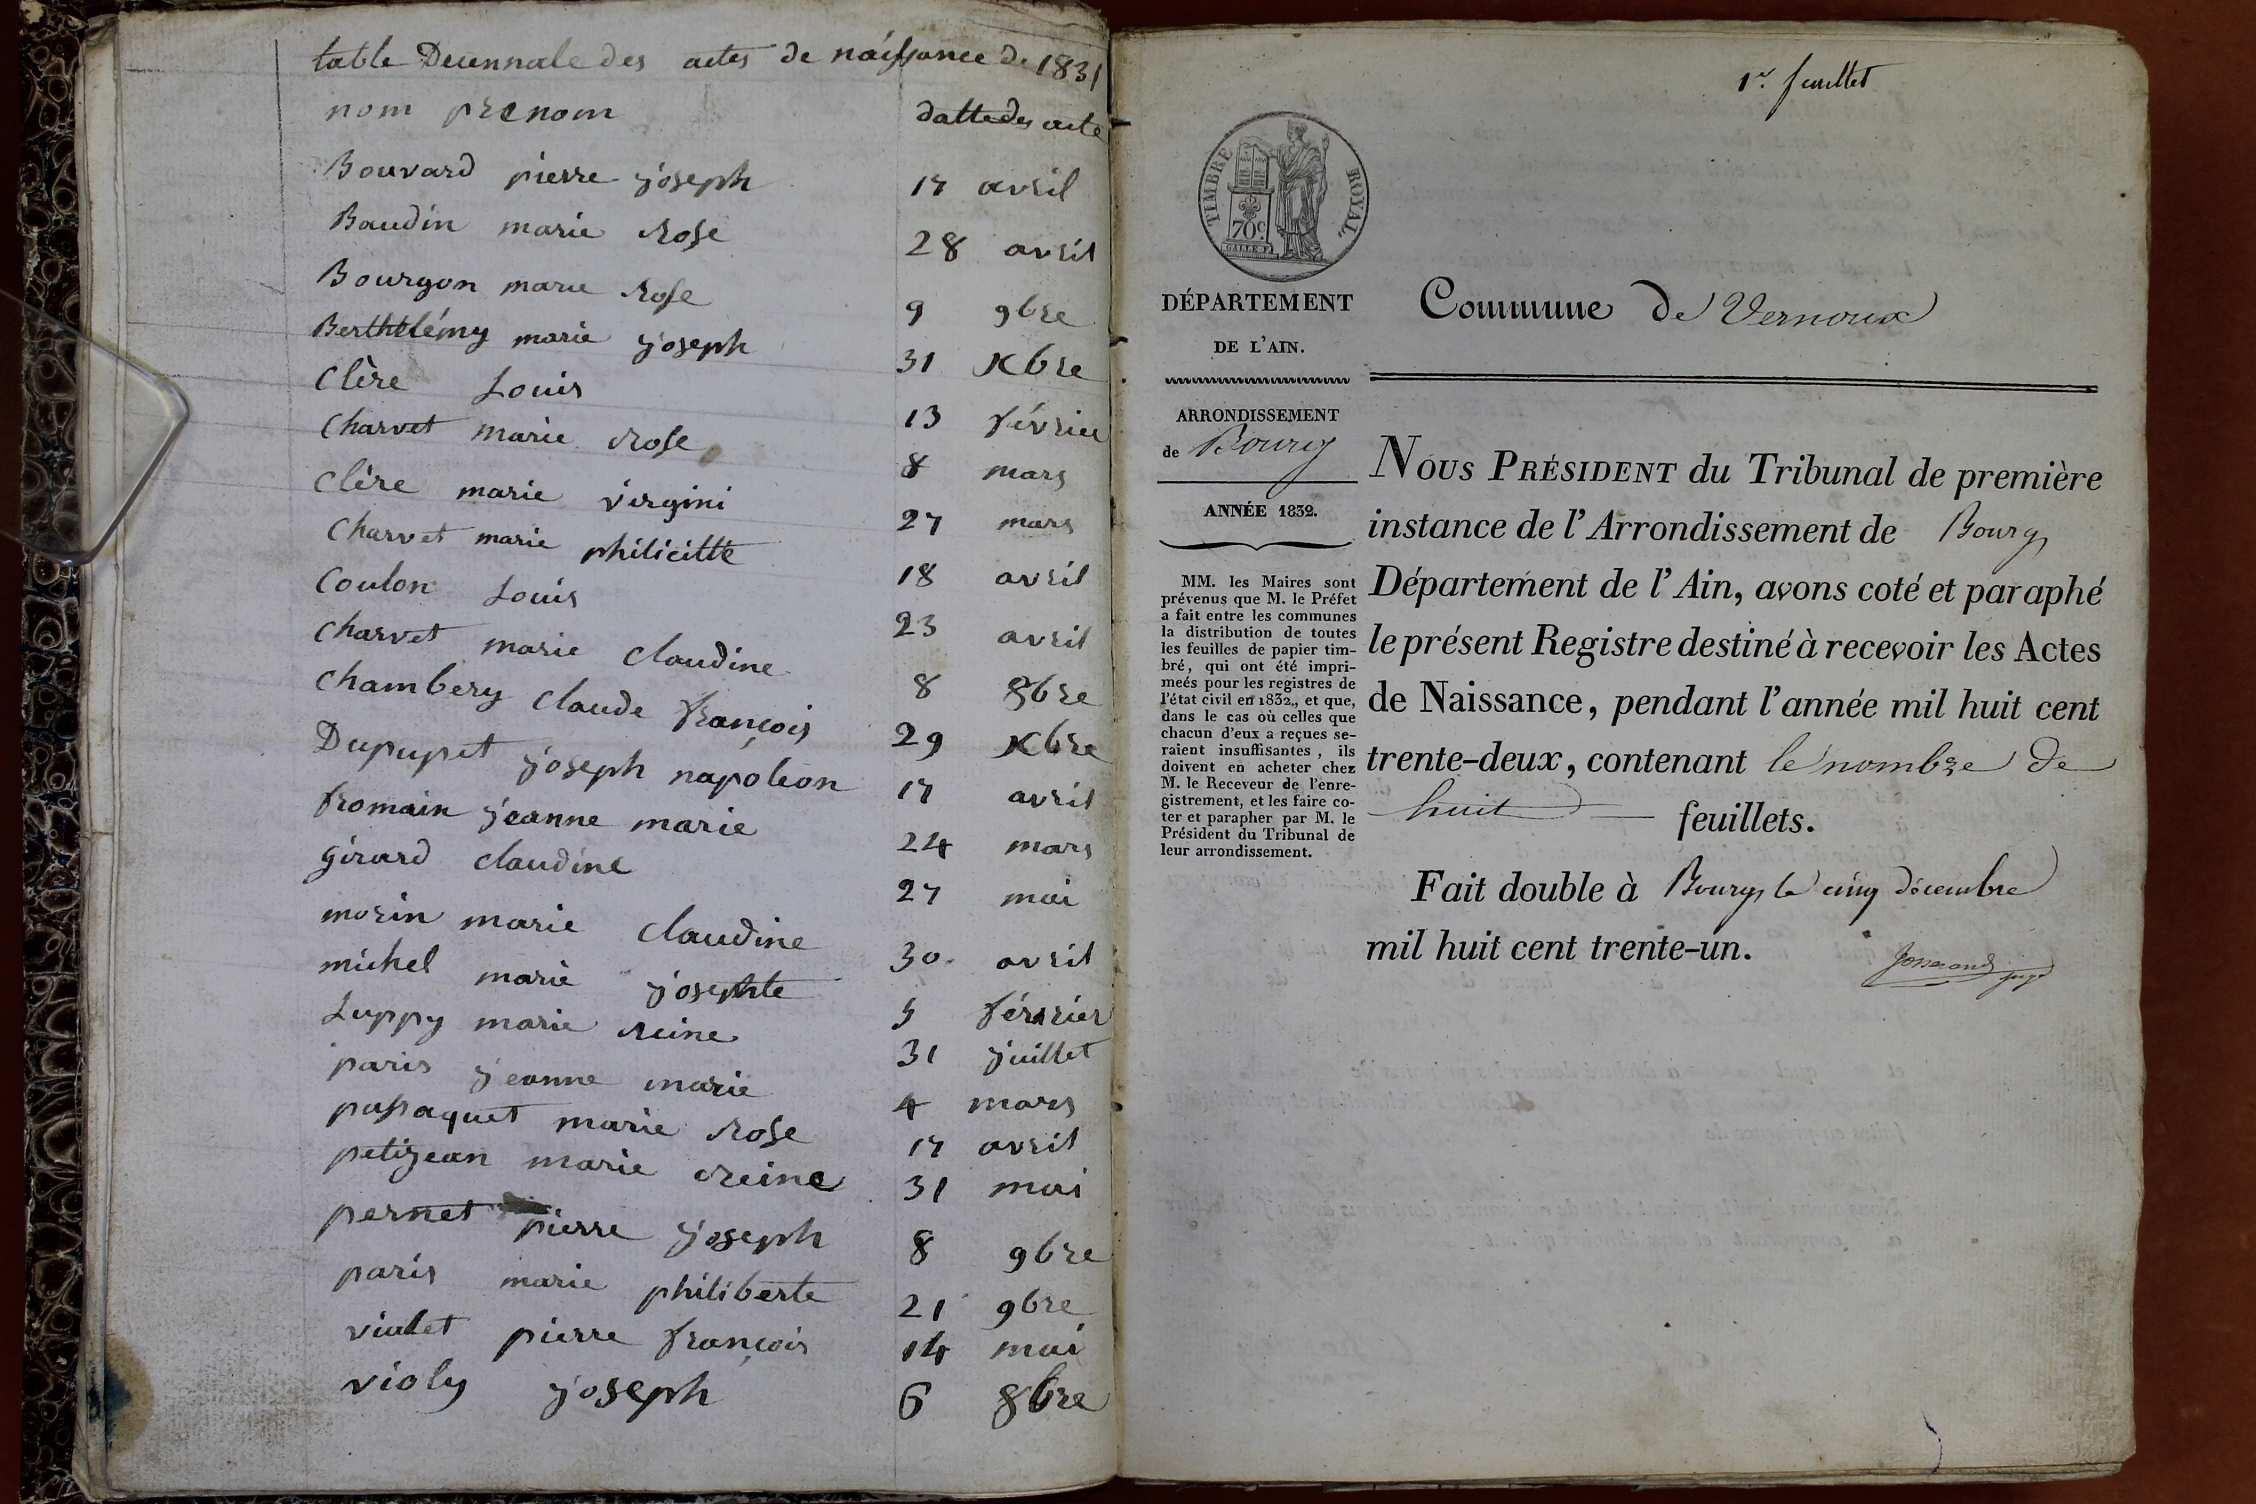 table Decennale des actes de naissance de 1831
nom prenom dattedes acte
Bouvard pierre joseph 17 avril
Baudin marie rose 28 avril
Bourgon marie rose 9 9bre
Berthelémy marie joseph 31 Xbre
Clère Louis 13 février
Charvet marie rose 8 mars
Clère marie virgini 27 mars
Charvet marie philicitte 18 avril
Coulon Louis 23 avril
Charvet marie claudine 8 8bre
Chambery claude françois 29 Xbre
Dupupet joseph napoléon 17 avril
fromain jeanne marie 24 mars
girard claudine 27 mai
morin marie claudine 30 avril
michel marie josephte 5 février
Luppy marie reine 31 juillet
paris jeanne marie 4 mars
passaquet marie rose 17 avril
petijean marie reine 31 mai
pernet pierre joseph 8 9bre
paris marie philiberte 21 9bre
violet pierre françois 14 mai
violy joseph 6 8bre
1er feuillet
TIMBRE ROYAL
70c
GALLE F.
DÉPARTEMENT
DE L'AIN.
Commune de Vernoux
ARRONDISSEMENT
de Bourg
ANNÉE 1832.
MM. les Maires sont
prévenus que M. le Préfet
a fait entre les communes
la distribution de toutes
les feuilles de papier tim-
bré, qui ont été impri-
meés pour les registres de
l'état civil en 1832., et que,
dans le cas où celles que
chacun d'eux a reçues se-
raient insuffisantes, ils
doivent en acheter chez
M. le Receveur de l'enre-
gistrement, et les faire co-
ter et parapher par M. le
Président du Tribunal de
leur arrondissement.
NOUS PRÉSIDENT du Tribunal de première
instance de l'Arrondissement de Bourg
Département de l'Ain, avons coté et paraphé
le présent Registre destiné à recevoir les Actes
de Naissance, pendant l'année mil huit cent
trente-deux, contenant le nombre de
huit feuillets.
Fait double à Bourg, le cinq décembre
mil huit cent trente-un.
Josserand juge